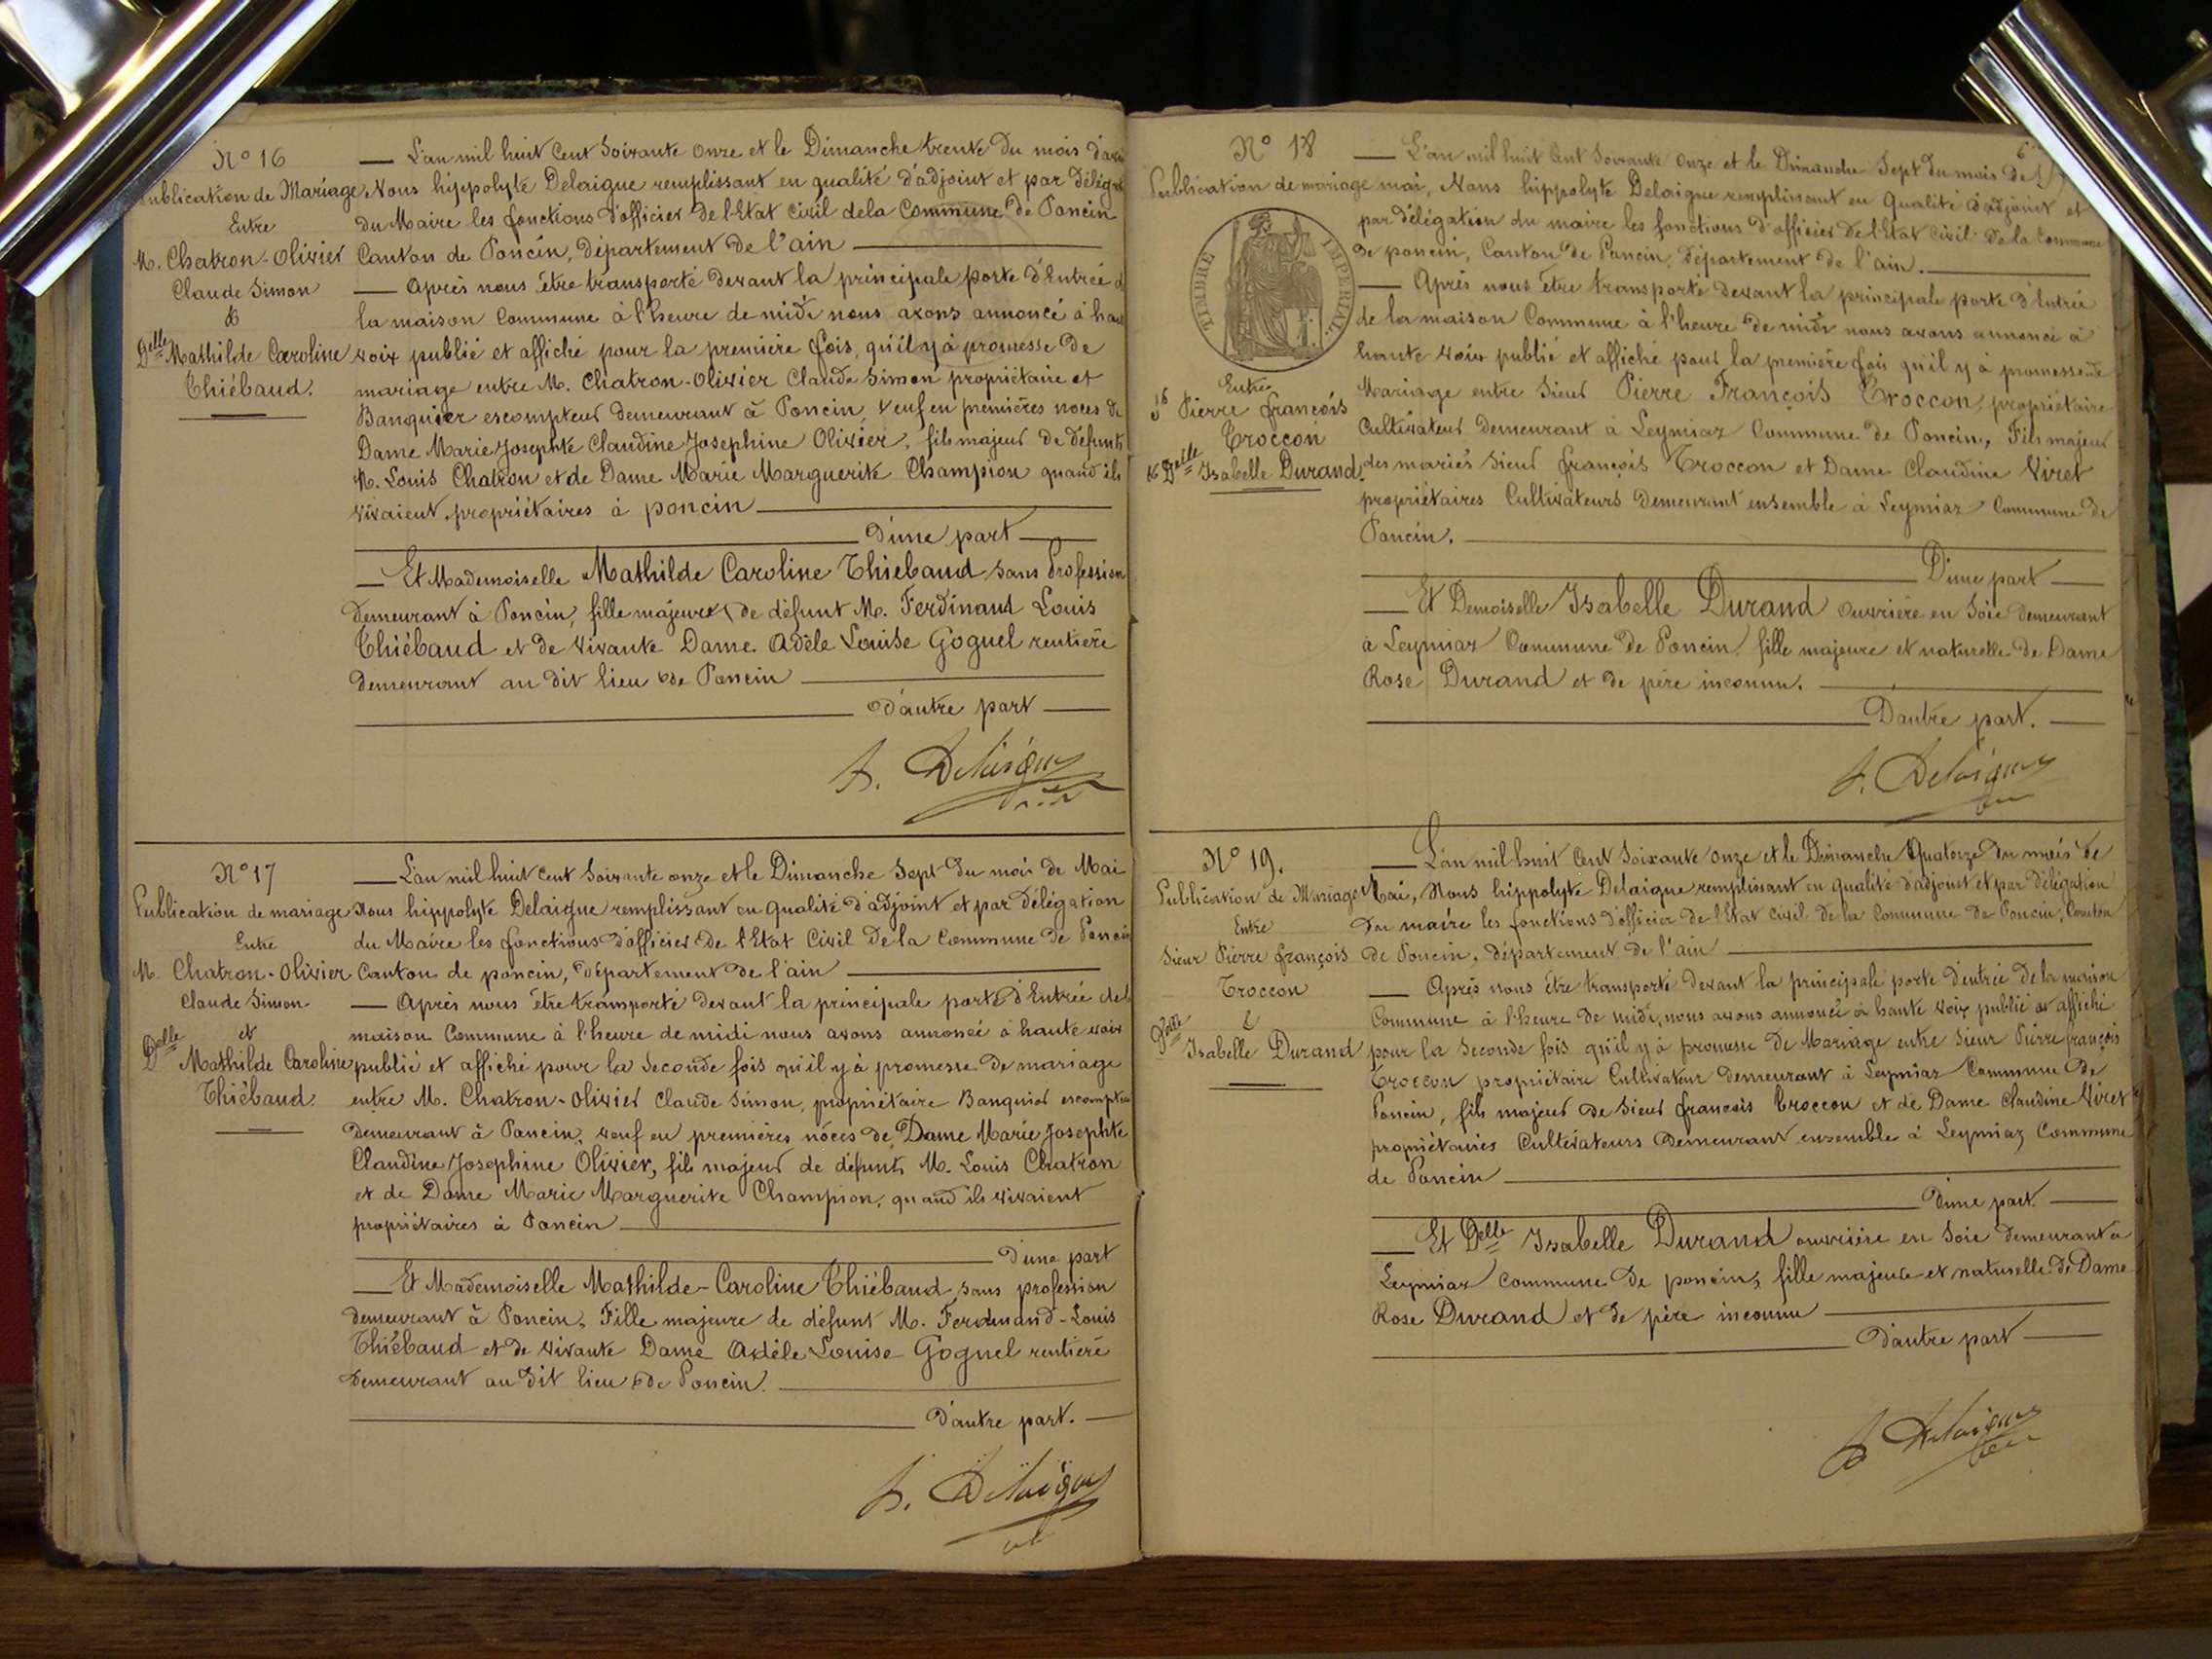 N° 16
Publication de Mariage
Entre
M. Chatron-Olivier
Claude Simon
&
Delle Mathilde Caroline
Thiébaud.
L'an mil huit Cent Soixante onze et le Dimanche trente du mois d'avril
Nous hippolyte Delaigue remplissant en qualité d'adjoint et par délég
du Maire les fonctions d'officier de l'Etat Civil de la Commune de Poncin
Canton de Poncin, département de l'ain
Après nous être transporté devant la principale porte d'Entrée d
la maison Commune à l'heure de midi nous avons annoncé à hau
voix publié et affiché pour la première fois, qu'il y à promesse de
mariage entre M. Chatron-Olivier Claude Simon propriétaire et
Banquier escompteur demeurant à Poncin, veuf en premières noces de
Dame Marie Josephte Claudine Josephine Olivier, fils majeur de défunts
M. Louis Chatron et de Dame Marie Marguerite Champion quand ils
vivaient propriétaires à poncin
d'une part
Et Mademoiselle Mathilde Caroline Thiébaud sans Profession
demeurant à Poncin, fille majeure de défunt M. Ferdinand Louis
Thiébaud et de vivante Dame Adèle Louise Goguel rentière
demeurant au dit lieu de Poncin
d'autre part
h. Delaigue
N° 17
Publication de mariage
Entre
M. Chatron-Olivier
Claude Simon
et
Delle
Mathilde Caroline
Thiébaud.
L'an mil huit Cent Soixante onze et le Dimanche Sept du mois de Mai
Nous hippolyte Delaigue remplissant en qualité d'adjoint et par délégation
du Maire les fonctions d'officier de l'Etat Civil de la Commune de Poncin
Canton de poncin, département de l'ain
Après nous être transporté devant la principale porte d'Entrée de l
maison Commune à l'heure de midi nous avons annoncé à haute voix
publié et affiché pour la Seconde fois qu'il y à promesse de mariage
entre M. Chatron-Olivier Claude Simon, propriétaire Banquier escompteur
demeurant à Poncin, veuf en premières nôces de Dame Marie Josephte
Claudine Josephine Olivier, fils majeur de défunts M. Louis Chatron
et de Dame Marie Marguerite Champion, quand ils vivaient
propriétaires à Poncin
d'une part
Et Mademoiselle Mathilde-Caroline Thiébaud sans profession
demeurant à Poncin, Fille majeure de défunt M. Ferdinand-Louis
Thiébaud et de vivante Dame Adèle Louise Goguel rentière
demeurant au dit lieu de Poncin.
d'autre part.
h. Delaigue
N° 18
Publication de mariage
TIMBRE IMPÉRIAL.
Entre
Sr Pierre françois
Troccon
& Delle Isabelle Durand.
L'an mil huit Cent Soixante Onze et le Dimanche Sept du mois de
mai, Nous hippolyte Delaigue remplissant en qualité d'adjoint et
par délégation du maire les fonctions d'officier de l'Etat Civil de la Commune
de poncin, Canton de Poncin, département de l'ain.
Après nous être transporté devant la principale porte d'Entrée
de la maison Commune à l'heure de midi nous avons annoncé à
haute voix publié et affiché pour la première fois qu'il y à promesse de
Mariage entre Sieur Pierre François Troccon, propriétaire
Cultivateur demeurant à Leymiaz Commune de Poncin, Fils majeur
des mariés Sieur françois Troccon et Dame Claudine Viret
propriétaires Cultivateurs demeurant ensemble à Leymiaz Commune de
Poncin.
D'une part
Et Demoiselle Isabelle Durand ouvrière en Soie demeurant
à Leymiaz Commune de Poncin, fille majeure et naturelle de Dame
Rose Durand et de père inconnu.
D'autre part.
h. Delaigue
N° 19.
Publication de Mariage
Entre
Sieur Pierre françois
Troccon
&
Delle
Isabelle Durand
L'an mil huit Cent Soixante onze et le Dimanche Quatorze du mois de
Mai, Nous hippolyte Delaigue remplissant en qualité d'adjoint et par délégation
du maire les fonctions d'officier de l'Etat Civil de la Commune de Poncin, Canton
de Poncin, département de l'ain
Après nous être transporté devant la principale porte d'entrée de la maison
Commune à l'heure de midi, nous avons annoncé à haute voix publié et affiché
pour la Seconde fois qu'il y à promesse de Mariage entre Sieur Pierre françois
Troccon propriétaire Cultivateur demeurant à Leymiaz Commune de
Poncin, fils majeur de Sieur françois Troccon et de Dame Claudine Viret
propriétaires Cultivateurs demeurant ensemble à Leymiaz Commune
de Poncin
d'une part.
Et Delle Isabelle Durand ouvrière en Soie demeurant a
Leymiaz Commune de poncin, fille majeure et naturelle de Dame
Rose Durand et de père inconnu
d'autre part
h Delaigue